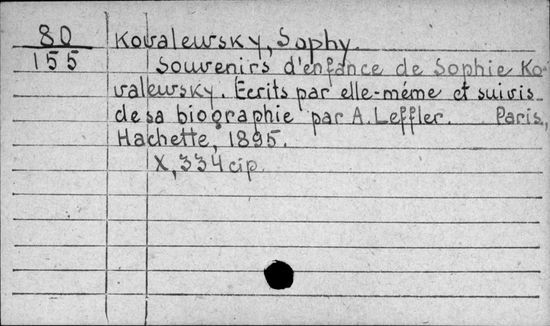 80 Kovalewsky, Sophy.
155 Souvenirs d'enfance de Sophie Ko-
valewsky. Écrits par elle-même et suivis
de sa biographie par A. Leffler. Paris,
Hachette, 1895.
X, 334 cip.